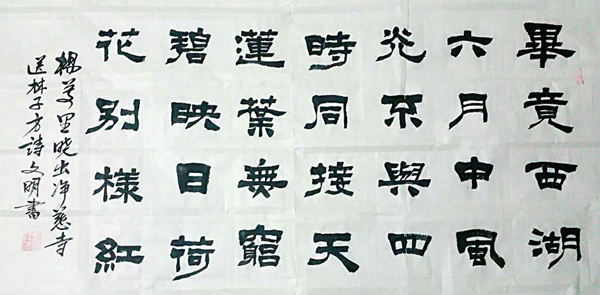 畢竟西湖
六月中風
光不與四
時同接天
蓮葉無窮
碧映日荷
花別樣紅
楊萬里晓出净慈寺
送林子方詩文明書